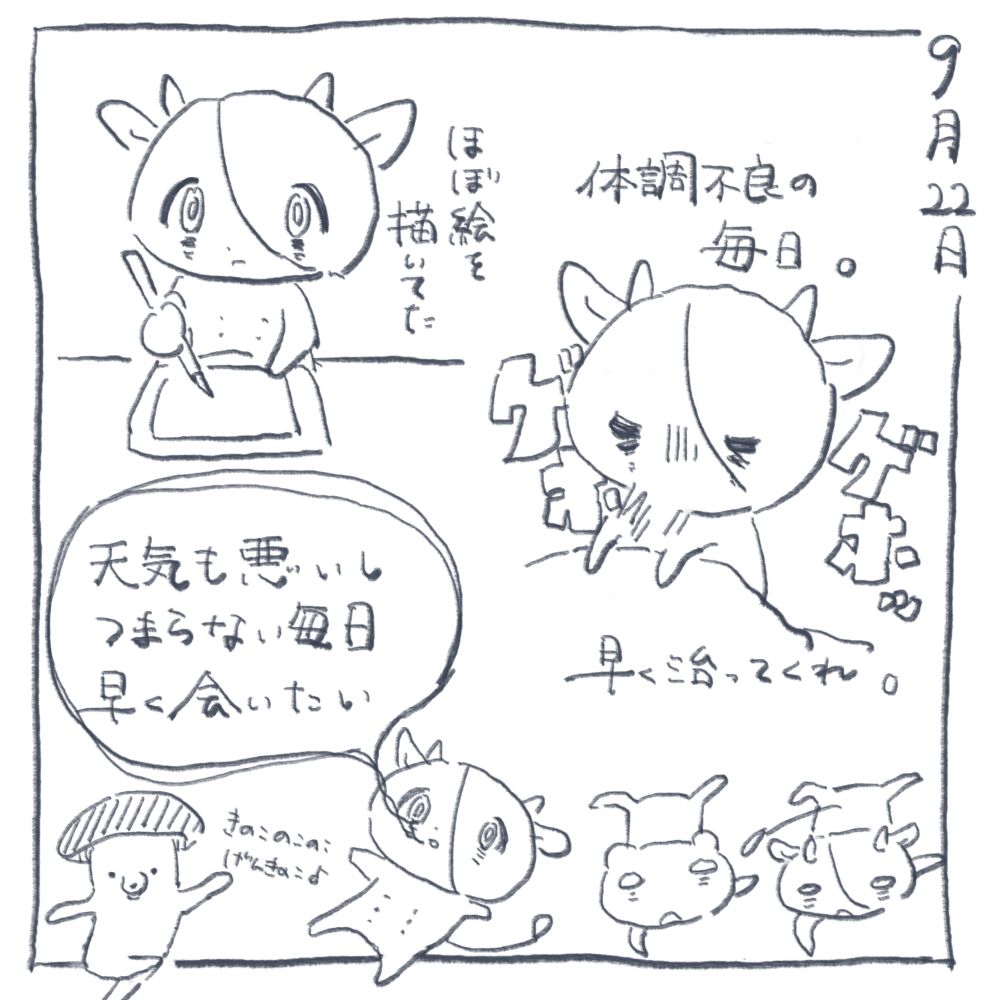 9月22日
体調不良の
毎日。
ゲホッ
ゲホッ
早く治ってくれ。
ほぼ絵を
描いてた
天気も悪いし
つまらない毎日
早く会いたい
きのこのこのこ
げんきのこ♪